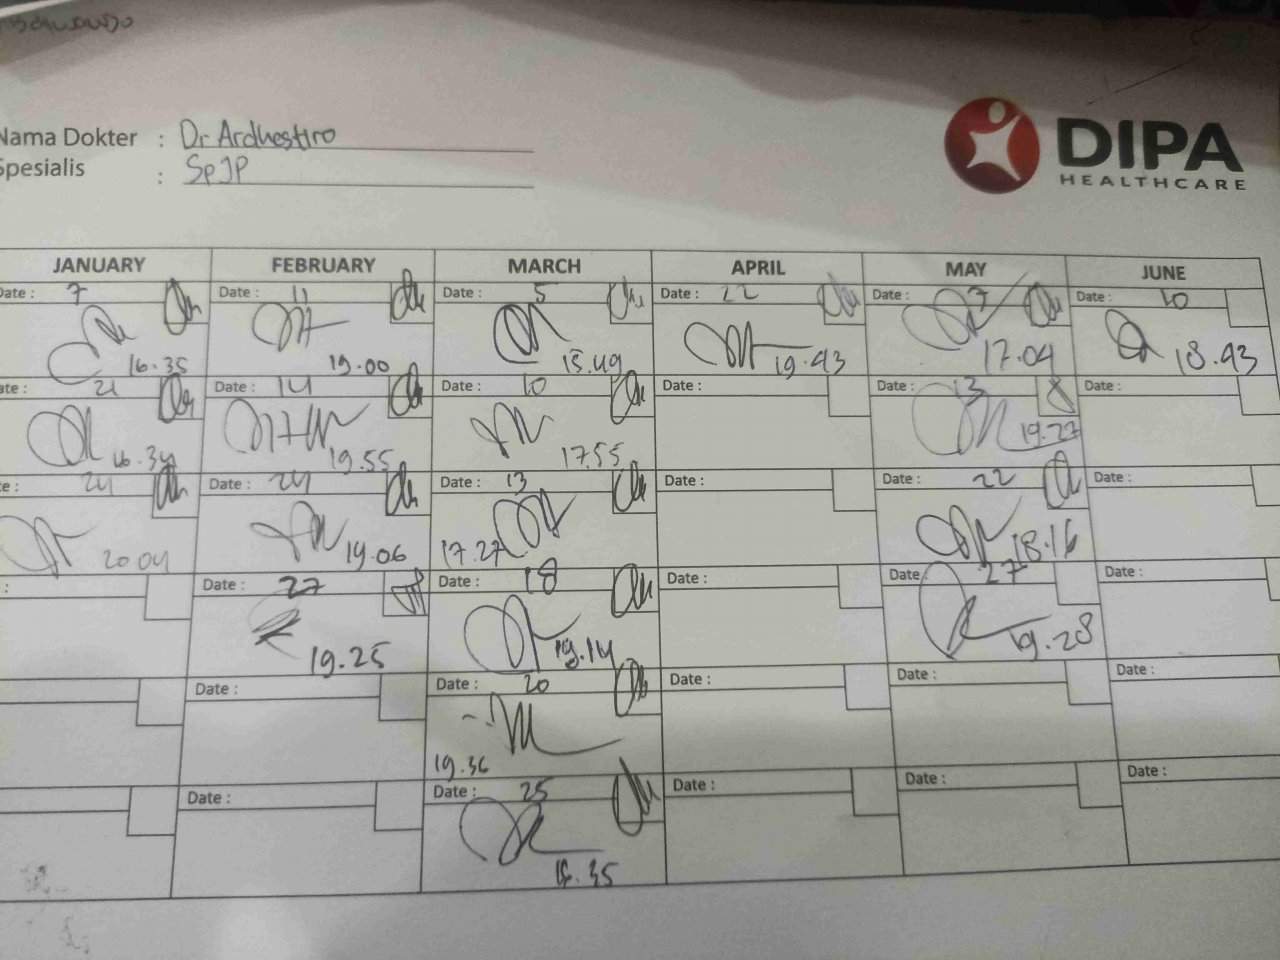 Nama Dokter : Dr Ardhestiro
Spesialis : SpJP
DIPA
HEALTHCARE
JANUARY FEBRUARY MARCH APRIL MAY JUNE
Date : 7 Date : 11 Date : 5 Date : 22 Date : 7 Date : 10
16.35 19.00 15.49 19.43 17.04 18.43
Date : 21 Date : 14 Date : 10 Date : Date : 13 Date :
16.34 19.55 17.55 19.27
24 Date : 24 Date : 13 Date : Date : 22 Date :
20.04 19.06 17.27 18.16
Date : 27 Date : 18 Date : Date 27 Date :
19.25 19.14 19.28
Date : Date : 20 Date : Date : Date :
19.36
Date : Date : 25 Date : Date : Date :